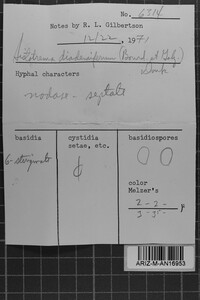 No. 6314
Notes by R. L. Gilbertson
12/22, 197
(Bourd. et Galz.)
Hyphal characters
nodose - septate
basidia
cystidia
setae, etc.
basidiospores
6-sterigmate
color
Melzer's
2 - 2 -
3 - 3.5 - μ
ARIZ-M-AN16953